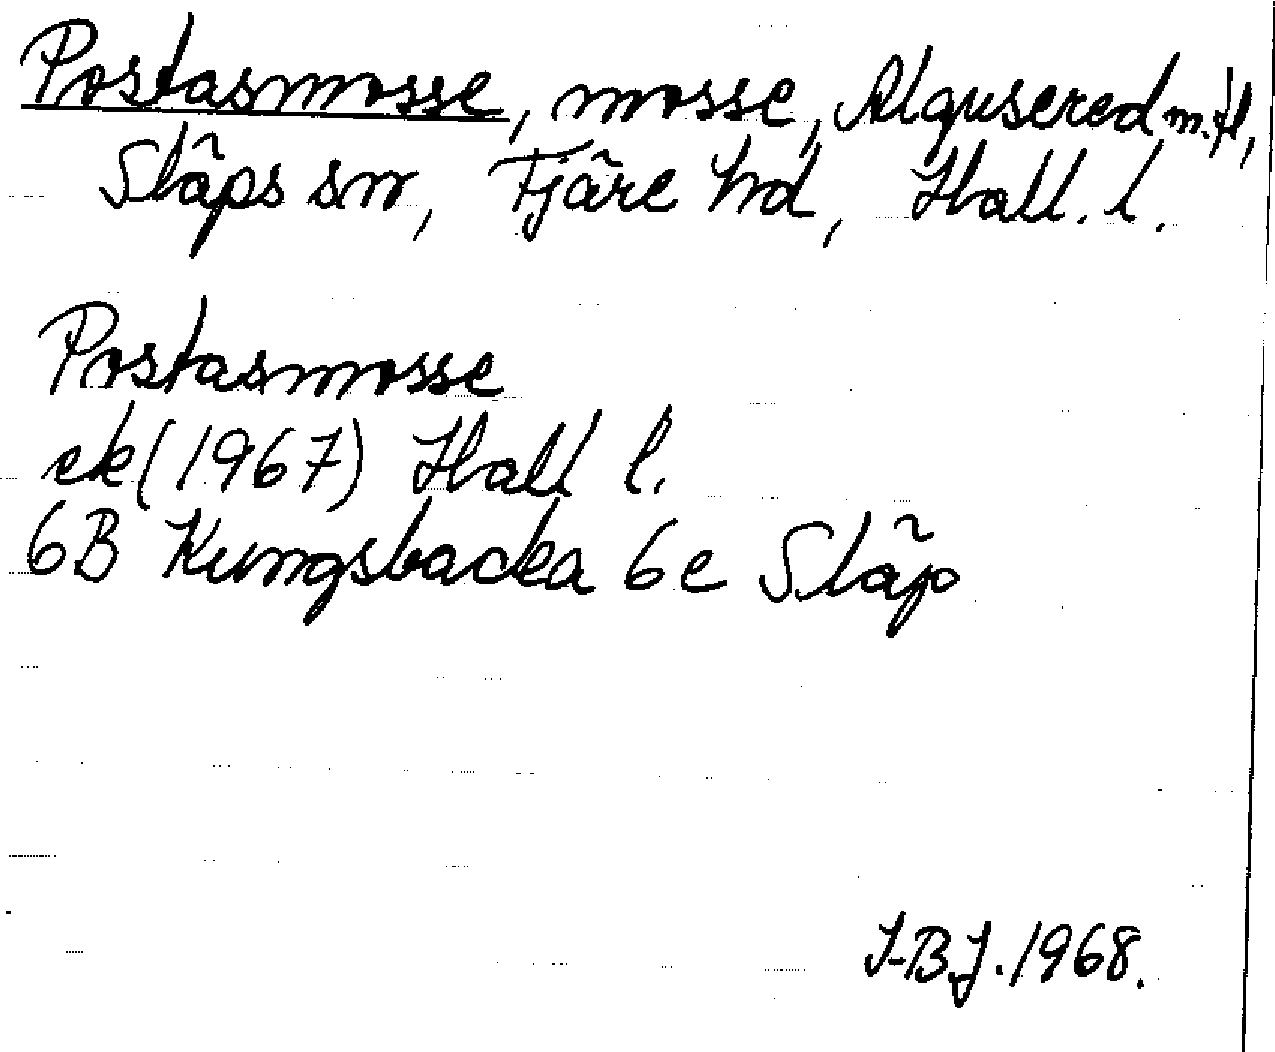 Postasmosse, mosse, Algusered m.fl,
Släps sn, Fjäre hd, Hall. l.
Postasmosse
ek (1967) Hall l.
6B Kungsbacka 6e Släp
I-B.J. 1968.